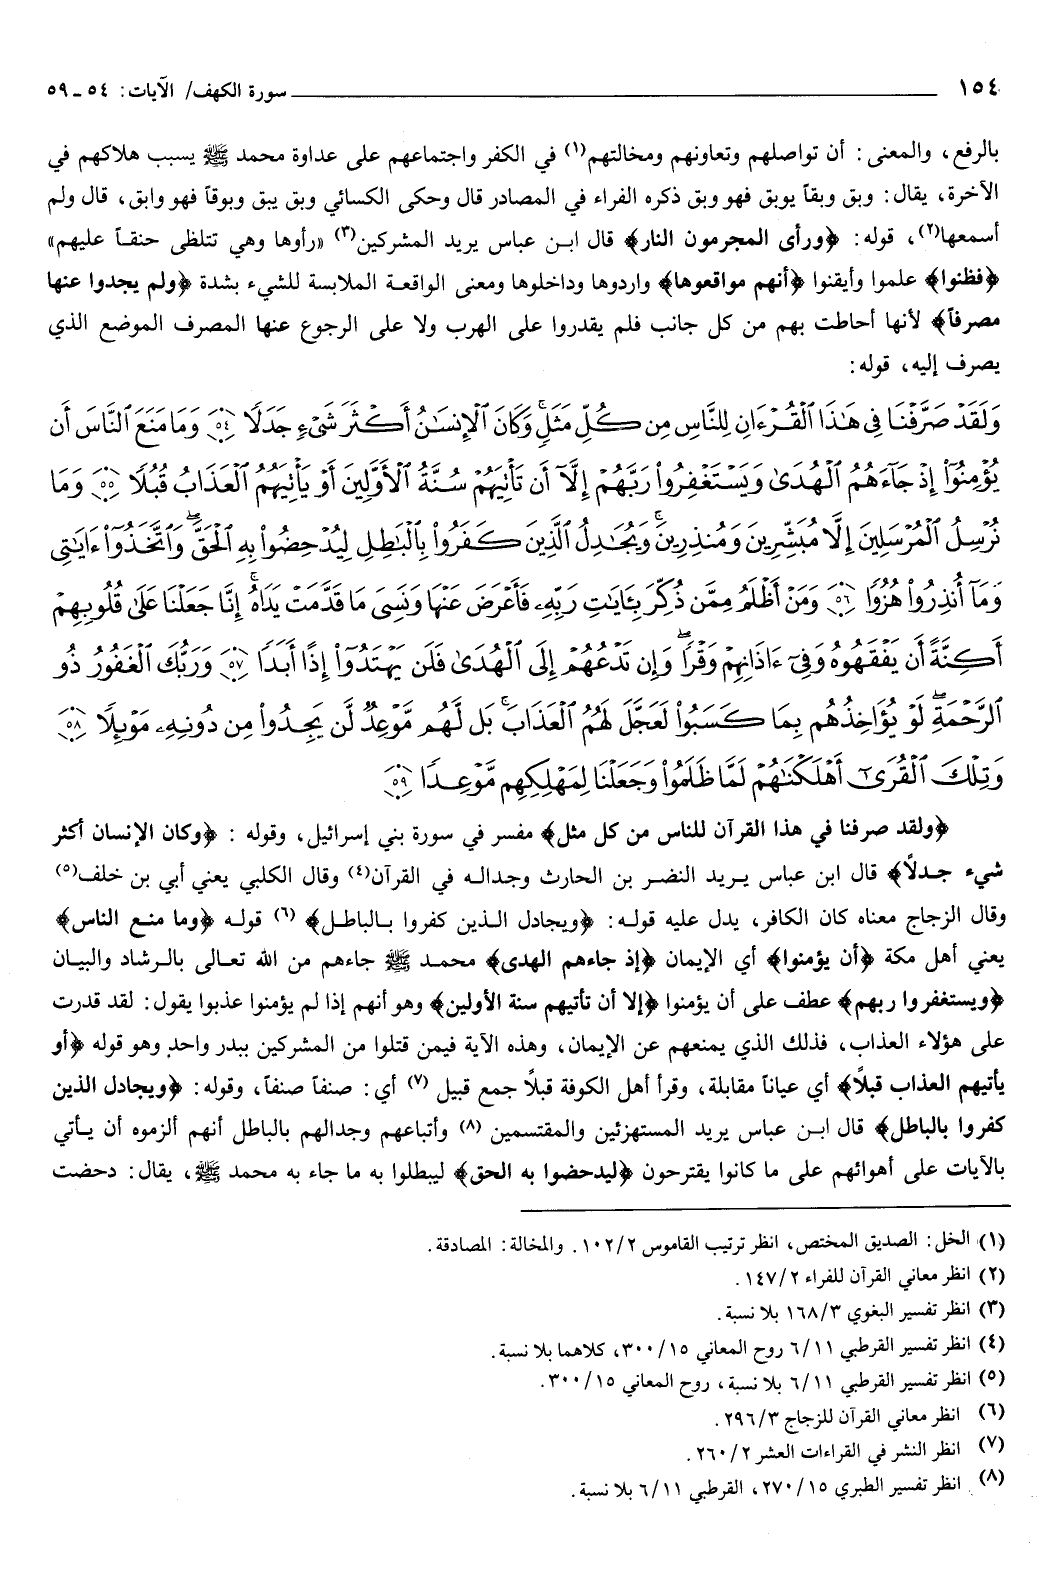 ١٥٤ سورة الكهف/ الآيات: ٥٤ ـ ٥٩
بالرفع، والمعنى: أن تواصلهم وتعاونهم ومخالتهم(١) في الكفر واجتماعهم على عداوة محمد ﷺ يسبب هلاكهم في
الآخرة، يقال: وبق وبقاً يوبق فهو وبق ذكره الفراء في المصادر قال وحكى الكسائي وبق يبق وبوقاً فهو وابق، قال ولم
أسمعها(٢)، قوله: ﴿ورأى المجرمون النار﴾ قال ابن عباس يريد المشركين(٣) «رأوها وهي تتلظى حنقاً عليهم»
﴿فظنوا﴾ علموا وأيقنوا ﴿أنهم مواقعوها﴾ واردوها وداخلوها ومعنى الواقعة الملابسة للشيء بشدة ﴿ولم يجدوا عنها
مصرفاً﴾ لأنها أحاطت بهم من كل جانب فلم يقدروا على الهرب ولا على الرجوع عنها المصرف الموضع الذي
يصرف إليه، قوله:
وَلَقَدْ صَرَّفْنَا فِى هَٰذَا ٱلْقُرْءَانِ لِلنَّاسِ مِن كُلِّ مَثَلٍۚ وَكَانَ ٱلْإِنسَٰنُ أَكْثَرَ شَىْءٍ جَدَلًا ﴿٥٤﴾ وَمَا مَنَعَ ٱلنَّاسَ أَن
يُؤْمِنُوٓا۟ إِذْ جَآءَهُمُ ٱلْهُدَىٰ وَيَسْتَغْفِرُوا۟ رَبَّهُمْ إِلَّآ أَن تَأْتِيَهُمْ سُنَّةُ ٱلْأَوَّلِينَ أَوْ يَأْتِيَهُمُ ٱلْعَذَابُ قُبُلًا ﴿٥٥﴾ وَمَا
نُرْسِلُ ٱلْمُرْسَلِينَ إِلَّا مُبَشِّرِينَ وَمُنذِرِينَۚ وَيُجَٰدِلُ ٱلَّذِينَ كَفَرُوا۟ بِٱلْبَٰطِلِ لِيُدْحِضُوا۟ بِهِ ٱلْحَقَّۖ وَٱتَّخَذُوٓا۟ ءَايَٰتِى
وَمَآ أُنذِرُوا۟ هُزُوًا ﴿٥٦﴾ وَمَنْ أَظْلَمُ مِمَّن ذُكِّرَ بِـَٔايَٰتِ رَبِّهِۦ فَأَعْرَضَ عَنْهَا وَنَسِىَ مَا قَدَّمَتْ يَدَاهُۚ إِنَّا جَعَلْنَا عَلَىٰ قُلُوبِهِمْ
أَكِنَّةً أَن يَفْقَهُوهُ وَفِىٓ ءَاذَانِهِمْ وَقْرًاۖ وَإِن تَدْعُهُمْ إِلَى ٱلْهُدَىٰ فَلَن يَهْتَدُوٓا۟ إِذًا أَبَدًا ﴿٥٧﴾ وَرَبُّكَ ٱلْغَفُورُ ذُو
ٱلرَّحْمَةِۖ لَوْ يُؤَاخِذُهُم بِمَا كَسَبُوا۟ لَعَجَّلَ لَهُمُ ٱلْعَذَابَۚ بَل لَّهُم مَّوْعِدٌ لَّن يَجِدُوا۟ مِن دُونِهِۦ مَوْئِلًا ﴿٥٨﴾
وَتِلْكَ ٱلْقُرَىٰٓ أَهْلَكْنَٰهُمْ لَمَّا ظَلَمُوا۟ وَجَعَلْنَا لِمَهْلِكِهِم مَّوْعِدًا ﴿٥٩﴾
﴿ولقد صرفنا في هذا القرآن للناس من كل مثل﴾ مفسر في سورة بني إسرائيل، وقوله : ﴿وكان الإنسان أكثر
شيء جدلاً﴾ قال ابن عباس يريد النضر بن الحارث وجداله في القرآن(٤) وقال الكلبي يعني أبي بن خلف(٥)
وقال الزجاج معناه كان الكافر، يدل عليه قوله: ﴿ويجادل الذين كفروا بالباطل﴾ (٦) قوله ﴿وما منع الناس﴾
يعني أهل مكة ﴿أن يؤمنوا﴾ أي الإيمان ﴿إذ جاءهم الهدى﴾ محمد ﷺ جاءهم من الله تعالى بالرشاد والبيان
﴿ويستغفروا ربهم﴾ عطف على أن يؤمنوا ﴿إلا أن تأتيهم سنة الأولين﴾ وهو أنهم إذا لم يؤمنوا عذبوا يقول: لقد قدرت
على هؤلاء العذاب، فذلك الذي يمنعهم عن الإيمان، وهذه الآية فيمن قتلوا من المشركين ببدر واحد وهو قوله ﴿أو
يأتيهم العذاب قبلاً﴾ أي عياناً مقابلة، وقرأ أهل الكوفة قبلاً جمع قبيل (٧) أي: صنفاً صنفاً، وقوله: ﴿ويجادل الذين
كفروا بالباطل﴾ قال ابن عباس يريد المستهزئين والمقتسمين (٨) وأتباعهم وجدالهم بالباطل أنهم ألزموه أن يأتي
بالآيات على أهوائهم على ما كانوا يقترحون ﴿ليدحضوا به الحق﴾ ليبطلوا به ما جاء به محمد ﷺ، يقال: دحضت
(١) الخل: الصديق المختص، انظر ترتيب القاموس ١٠٢/٢. والمخالة: المصادقة.
(٢) انظر معاني القرآن للفراء ١٤٧/٢.
(٣) انظر تفسير البغوي ١٦٨/٣ بلا نسبة.
(٤) انظر تفسير القرطبي ٦/١١ روح المعاني ٣٠٠/١٥، كلاهما بلا نسبة.
(٥) انظر تفسير القرطبي ٦/١١ بلا نسبة، روح المعاني ٣٠٠/١٥.
(٦) انظر معاني القرآن للزجاج ٢٩٦/٣.
(٧) انظر النشر في القراءات العشر ٢٦٠/٢.
(٨) انظر تفسير الطبري ٢٧٠/١٥، القرطبي ٦/١١ بلا نسبة.